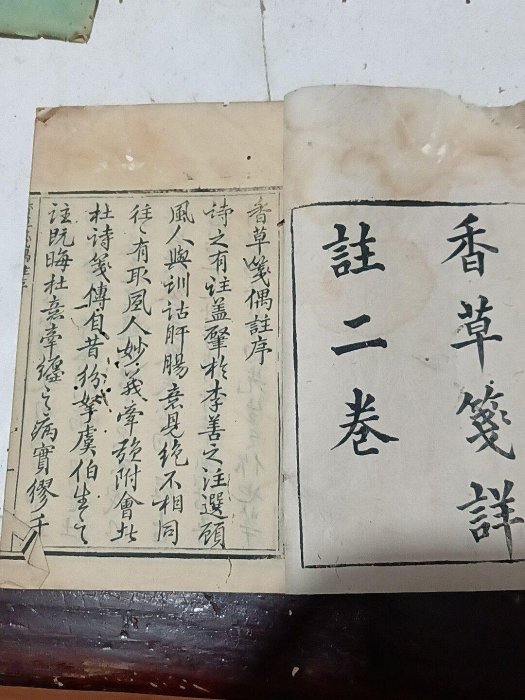 香草箋詳
註二卷
香草箋偶註序
詩之有註蓋肇於李善之注選顧
風人與訓詁肝腸意見絶不相同
往〻有取風人妙義牽強附會此
杜詩箋傳自昔紛拏虞伯生之
註既晦杜意牽纏之病實繆千